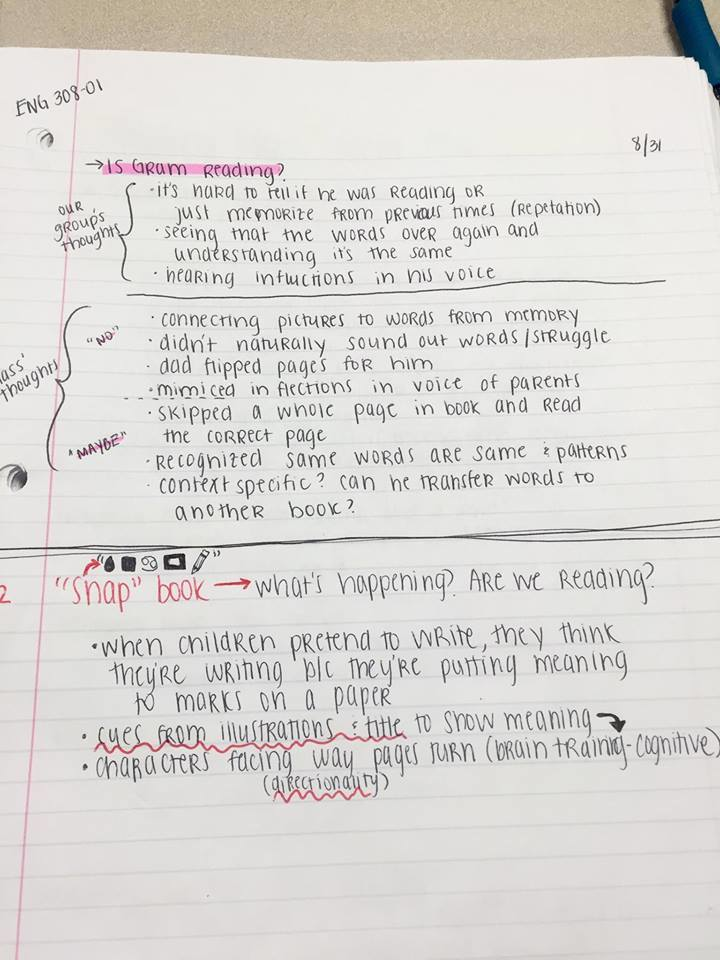 ENG 308-01
8/31
→ Is Gram Reading?
our group's thoughts
· it's hard to tell if he was reading or
just memorize from previous times (repetation)
· seeing that the words over again and
understanding it's the same
· hearing influctions in his voice
lass' thoughts
"NO"
· connecting pictures to words from memory
· didn't naturally sound out words/struggle
· dad flipped pages for him
· mimiced inflections in voice of parents
· skipped a whole page in book and read
the correct page
"MAYBE"
· recognized same words are same & patterns
· context specific? can he transfer words to
another book?
2 "Snap" book → what's happening? Are we reading?
· when children pretend to write, they think
they're writing b/c they're putting meaning
to marks on a paper
· cues from illustrations & title to show meaning
· characters facing way pages turn (brain training-cognitive)
(directionality)